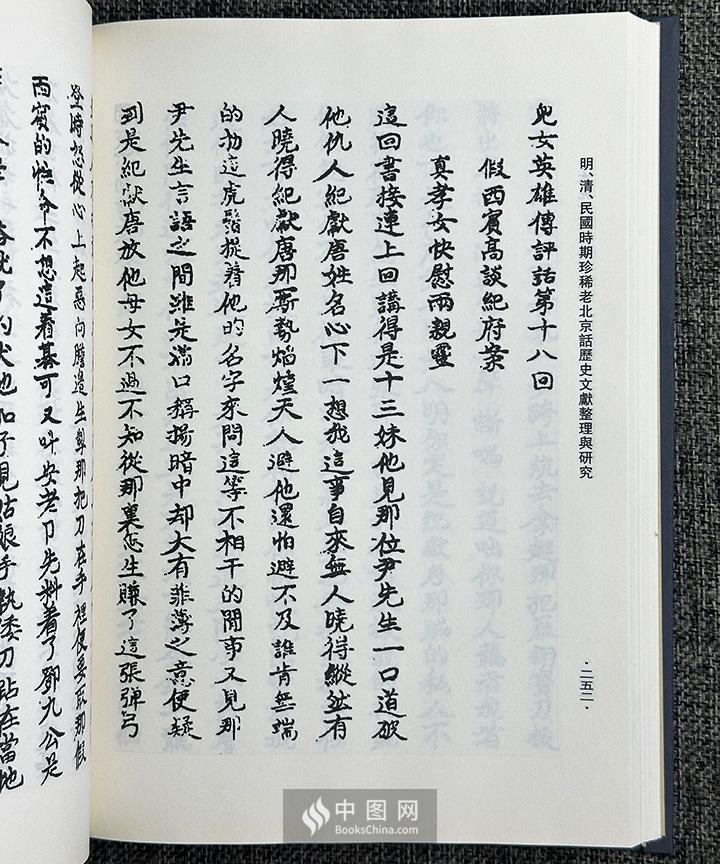 明、清、民國時期珍稀老北京話歷史文獻整理與研究
·二五二·
兒女英雄傳評話第十八回
假西賓高談紀府案
真孝女快慰兩親靈
這回書接連上回講得是十三妹他見那位尹先生一口道破
他仇人紀獻唐姓名心下一想我這事自來無人曉得縱然有
人曉得紀獻唐那厮勢焰煌天人避他還怕避不及誰肯無端
的扐這虎鬚提着他的名字來問這等不相干的閒事又見那
尹先生言語之間雖是滿口稱揚暗中却大有菲薄之意便疑
到是紀獻唐放他母女不過不知從那裏怎生賺了這張彈弓
登時怒從心上起惡向膽邊生掣那把刀在手裡便要取那假
西賓的性命不想這着棊可又叫安老卩先料着了鄧九公是
見姑娘手執倭刀站在當地
中图网
BooksChina.com